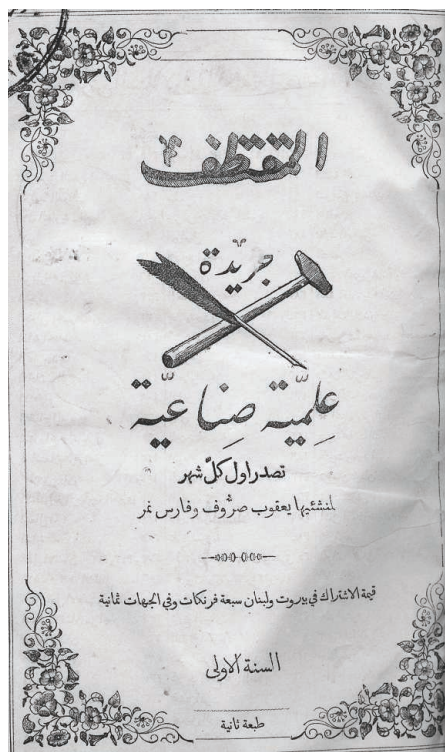 المقتطف
جريدة
علميَّة صِناعيَّة
تصدر اول كلّ شهر
لمنشئيها يعقوب صرُّوف وفارس نمر
قيمة الاشتراك في بيروت ولبنان سبعة فرنكات وفي الجهات ثمانية
السنة الاولى
طبعة ثانية